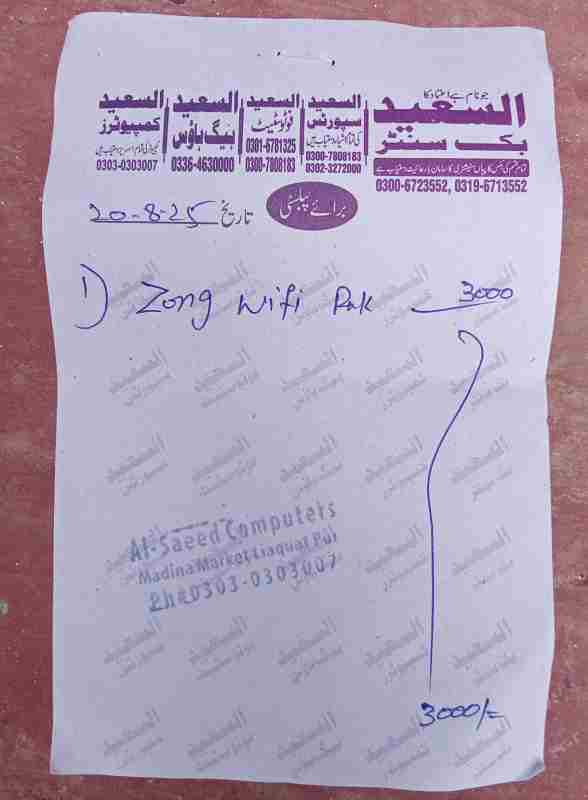 جو نام ہے اعتماد کا
السعید
بک سنٹر
0300-6723552, 0319-6713552
السعید
سپورٹس
0300-7808183
0302-3272000
السعید
فوٹوسٹیٹ
0301-6781325
0300-7808183
السعید
بیگ ہاؤس
0336-4630000
السعید
کمپیوٹرز
0303-0303007
برائے پبلسٹی
تاریخ 20-8-25
1) Zong Wifi Pak 3000
Al-Saeed Computers
Madina Market Liaquat Pur
Ph#0303-0303007
3000/=